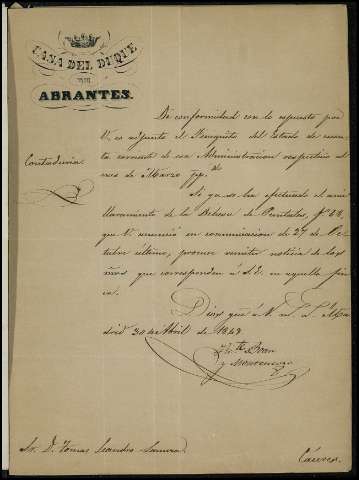 CASA DEL DUQUE
DE
ABRANTES.
Contaduria
De conformidad con lo espuesto por
V. es adjunto el Finiquito del Estado de cuen-
ta corriente de esa Administracion respectivo al
mes de Marzo pp.do
Si ya se ha efectuado el ami-
llaramiento de la Dehesa de Puntales, nº 44,
que V. anunció en comunicacion de 27 de Oc-
tubre último, procure remitir noticia de los
que corresponden á S.E. en aquella fin-
ca.
Dios gue á V. m. a. Ma-
drid 30 de Abril de 1849
Sr. D. Tomas Leandro
Cáceres.